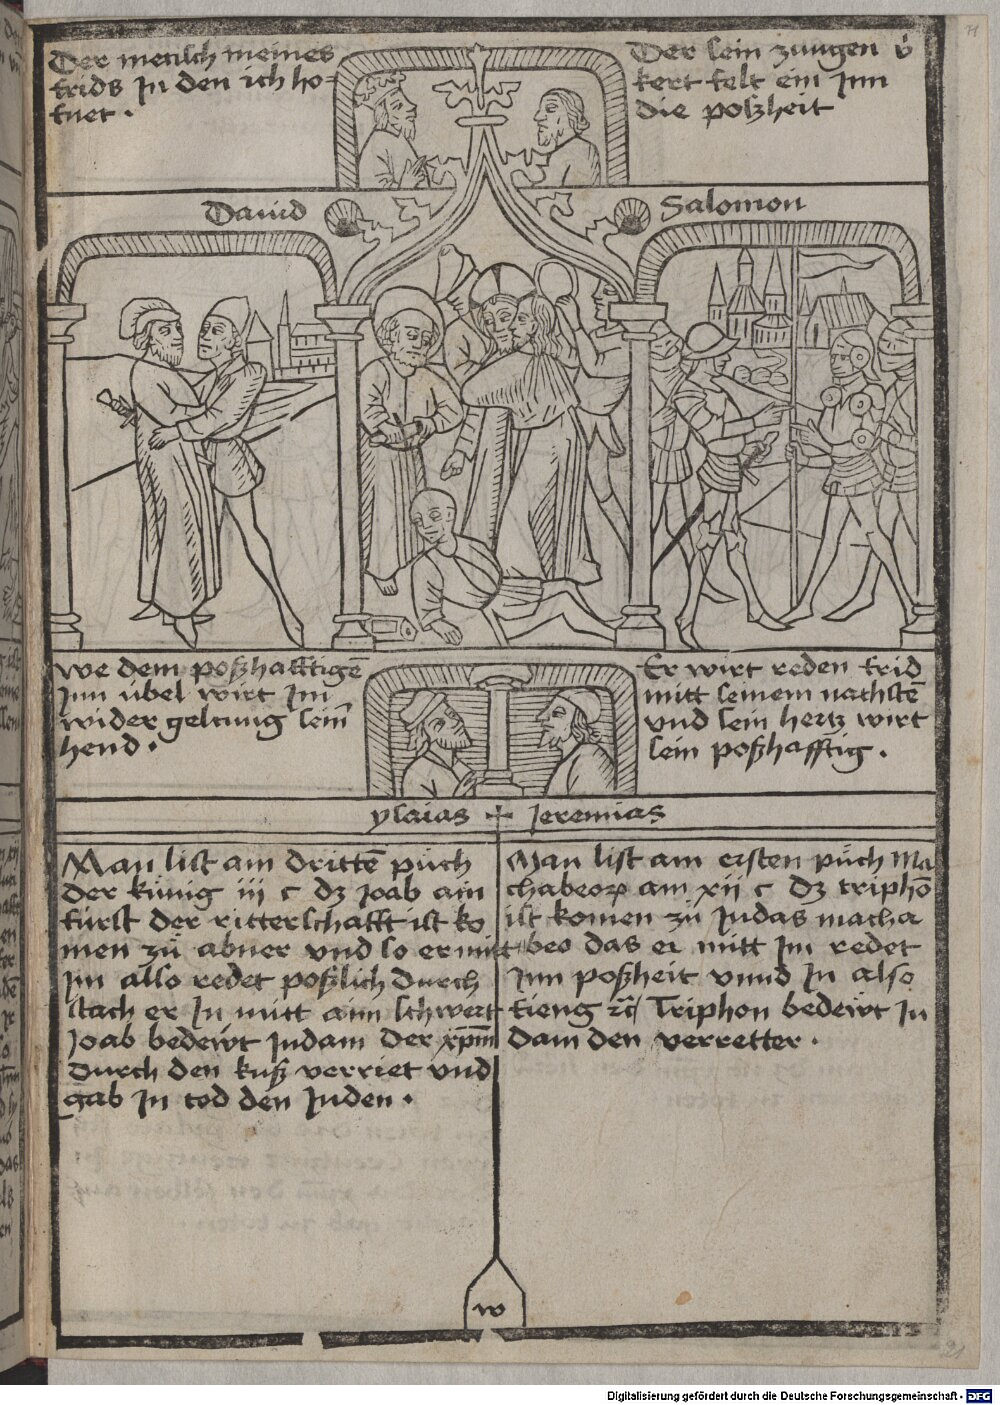 Der mensch meines
frids in den ich ho-
fnet .
Der sein zungen v̊
kert felt ein Jnn
die poßheit
Dauid
Salomon
we dem poßhafftigē
Jnn übel wirt Jm
wider geltung seiñ
hend .
Er wirt reden frid
mitt seinem nachstē
vnd sein hertz wirt
sein poßhafftig .
ysaias + Jeremias
Man list am drittē půch
der künig iij c dz Joab ain
fürst der ritterschafft ist ko
men zů abner vnd so er mitt
im also redet poßlich durch
stach er Jn mitt aim schwert
Joab bedewt Judam der xp̄m
durch den kuß verriet vnd
gab Jn tod den Juden .
Man list am ersten půch Ma
chabeorꝝ am xii c dz triphō
ist komen zů Judas macha
beo das er mitt Jm redet
Jnn poßheit vnnd Jn also
fieng ⁊c̄ Triphon bedewt Ju
dam den verretter .
w
Digitalisierung gefördert durch die Deutsche Forschungsgemeinschaft - DFG